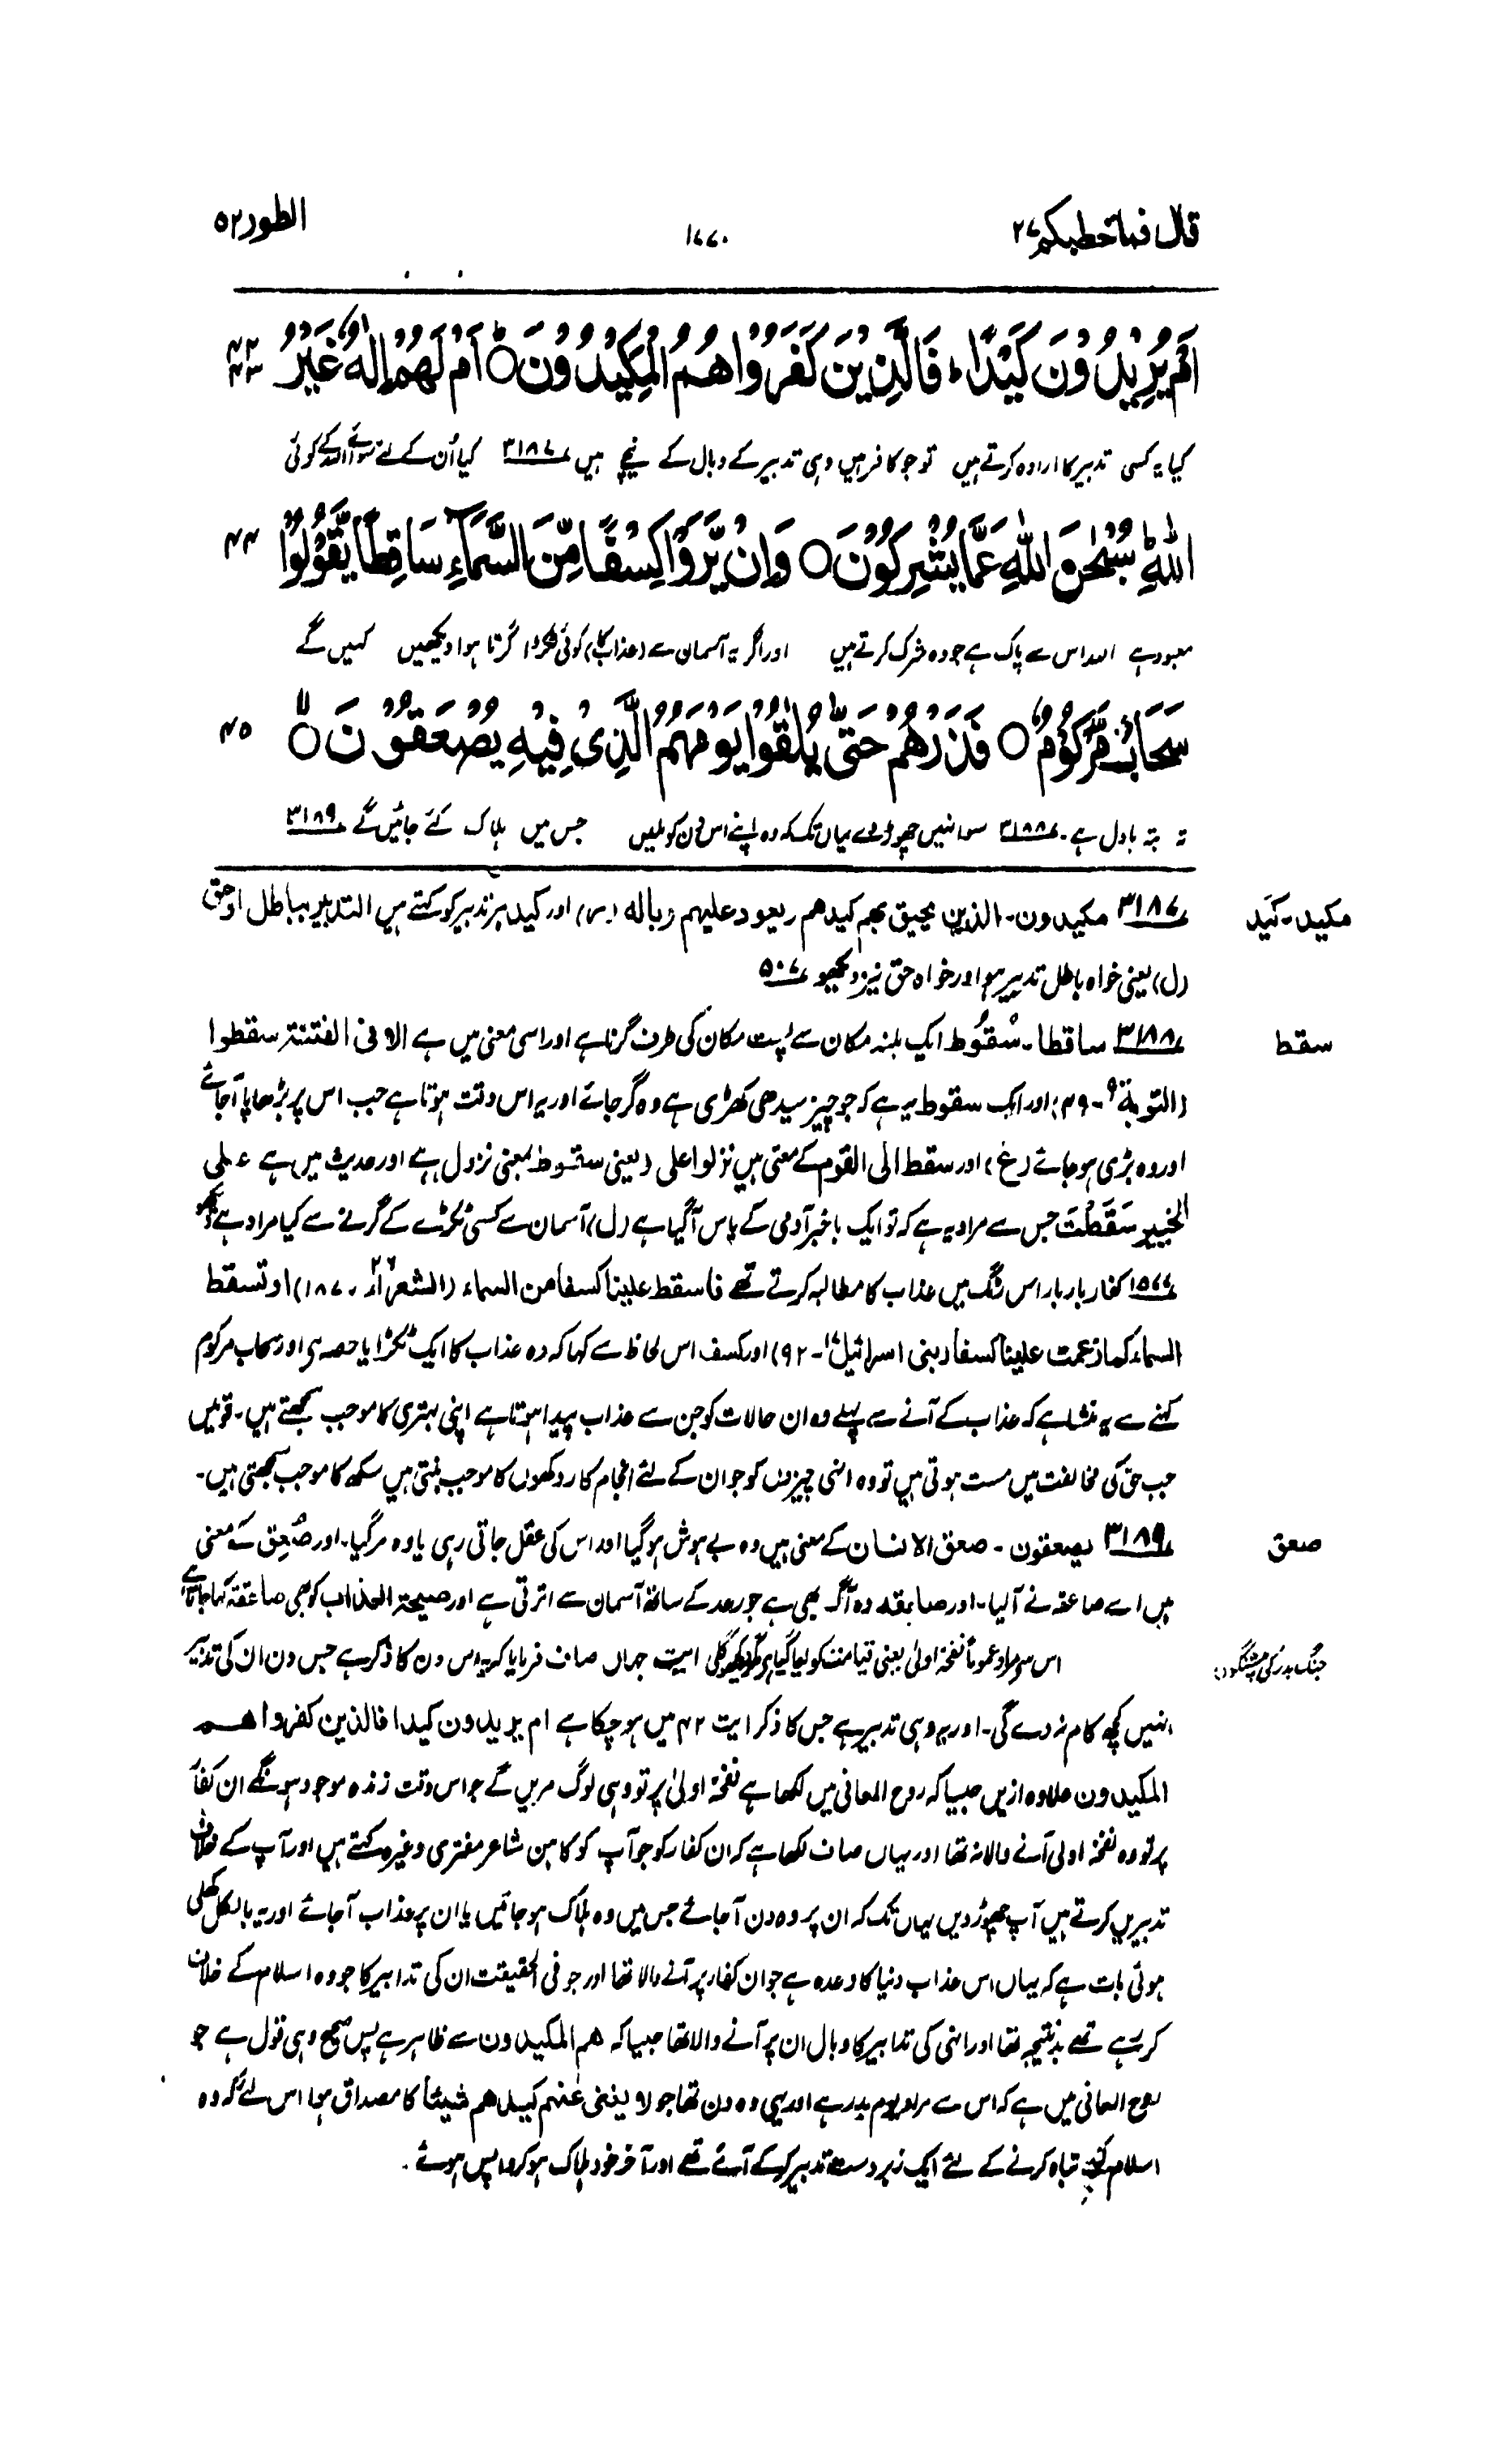 قال فماخطبکم ۲۷
۱۷۷۰
الطور ۵۲
اَمۡ یُرِیۡدُوۡنَ کَیۡدًا ؕ فَالَّذِیۡنَ کَفَرُوۡا ہُمُ الۡمَکِیۡدُوۡنَ ○ؕ اَمۡ لَہُمۡ اِلٰہٌ غَیۡرُ ۴۲ ۴۳
کیا یہ کسی تدبیر کا ارادہ کرتے ہیں تو جو کافر ہیں وہی تدبیر کے وبال کے نیچے ہیں ۳۱۸۷ کیا اُن کے لئے سوائے اللہ کے کوئی
اللّٰہِ ؕ سُبۡحٰنَ اللّٰہِ عَمَّا یُشۡرِکُوۡنَ ○ وَاِنۡ یَّرَوۡا کِسۡفًا مِّنَ السَّمَآءِ سَاقِطًا یَّقُوۡلُوۡا ۴۴
معبود ہے اللہ اس سے پاک ہے جو وہ شرک کرتے ہیں اور اگر یہ آسمان سے (عذاب کا) کوئی ٹکڑا گرتا ہوا دیکھیں کہیں گے
سَحَابٌ مَّرۡکُوۡمٌ ○ فَذَرۡہُمۡ حَتّٰی یُلٰقُوۡا یَوۡمَہُمُ الَّذِیۡ فِیۡہِ یُصۡعَقُوۡنَ ○ۙ ۴۵
تہ بتہ بادل ہے۔ ۳۱۸۸ سو انہیں چھوڑ دے یہاں تک کہ وہ اپنے اس دن کو ملیں جس میں ہلاک کئے جائیں گے ۳۱۸۹
مکید۔ کَید
۳۱۸۷ مکیدون۔ الذین یحیق بھم کیدھم ویعود علیھم وبالہ (ر) اور کید ہر تدبیر کو کہتے ہیں التدبیر بباطل اوحق
(ل) یعنی خواہ باطل تدبیر ہو اور خواہ حق نیز دیکھو ۵۰۷
سقط
۳۱۸۸ ساقطا۔ سُقُوط ایک بلند مکان سے پست مکان کی طرف گرنا ہے اور اسی معنی میں ہے الا فی الفتنۃ سقطوا
(التوبۃ ۹۔ ۴۹) اور ایک سقوط یہ ہے کہ جو چیز سیدھی کھڑی ہے وہ گر جائے اور یہ اس وقت ہوتا ہے جب اس پر بڑھاپا آجائے
اور وہ بڑی ہو جائے (غ) اور سقط الی القوم کے معنی ہیں نزلوا علی (یعنی سقوط بمعنی نزول ہے اور حدیث میں ہے علی
الخبیر سَقَطْتَ جس سے مراد یہ ہے کہ تو ایک باخبر آدمی کے پاس آگیا ہے (ل) آسمان سے کسی ٹکڑے کے گرنے سے کیا مراد ہے دیکھو
۱۵۷۷ کفار بار بار اس رنگ میں عذاب کا مطالبہ کرتے تھے فاسقط علینا کسفا من السماء (الشعرآء ۲۶۔ ۱۸۷) او تسقط
السماء کما زعمت علینا کسفا (بنی اسرائیل ۱۷۔ ۹۲) اور کسف اس لحاظ سے کہا کہ وہ عذاب کا ایک ٹکڑا یا حصہ ہی اور سحاب مرکوم
کہنے سے یہ منشا ہے کہ عذاب کے آنے سے پہلے وہ ان حالات کو جن سے عذاب پیدا ہوتا ہے اپنی بہتری کا موجب سمجھتے ہیں۔ قومیں
جب حق کی مخالفت میں مست ہوتی ہیں تو وہ انہی چیزوں کو جو ان کے لئے انجام کار دکھوں کا موجب بنتی ہیں سکھ کا موجب سمجھتی ہیں۔
صعق
۳۱۸۹ یصعقون۔ صعق الانسان کے معنی ہیں وہ بے ہوش ہو گیا اور اس کی عقل جاتی رہی یا وہ مر گیا۔ اور صُعِق کے معنی
ہیں اسے صاعقہ نے آلیا۔ اور صاعقہ وہ آگ بھی ہے جو رعد کے ساتھ آسمان سے اترتی ہے اور صیحۃ العذاب کو بھی صاعقۃ کہا جاتا ہے
جنگ بدر کی پیشگوئی
اس سے مراد عموماً نفخۂ اولیٰ یعنی قیامت کو لیا گیا ہے مگر دیکھو اگلی آیت جہاں صاف فرمایا کہ یہ اس دن کا ذکر ہے جس دن ان کی تدبیر
انہیں کچھ کام نہ دے گی۔ اور یہ وہی تدبیر ہے جس کا ذکر آیت ۴۲ میں ہو چکا ہے ام یریدون کیدا فالذین کفروا ھم
المکیدون علاوہ ازیں جیسا کہ روح المعانی میں لکھا ہے نفخۂ اولیٰ پر تو وہی لوگ مریں گے جو اس وقت زندہ موجود ہونگے ان کفار
پر تو وہ نفخۂ اولی آنے والا نہ تھا اور یہاں صاف لکھا ہے کہ ان کفار کو جو آپ کو کاہن شاعر مفتری وغیرہ کہتے ہیں اور آپ کے خلاف
تدبیریں کرتے ہیں آپ چھوڑ دیں یہاں تک کہ ان پر وہ دن آجائے جس میں وہ ہلاک ہو جائیں یا ان پر عذاب آجائے اور یہ بالکل کھلی
ہوئی بات ہے کہ یہاں اس عذاب دنیا کا وعدہ ہے جو ان کفار پر آنے والا تھا اور جو فی الحقیقت ان کی تدابیر کا جو وہ اسلام کے خلاف
کر رہے تھے بدنتیجہ تھا اور انہی کی تدابیر کا وبال ان پر آنے والا تھا جیسا کہ ھم المکیدون سے ظاہر ہے پس صحیح وہی قول ہے جو
روح المعانی میں ہے کہ اس سے مراد یوم بدر ہے اور یہی وہ دن تھا جو لا یغنی عنھم کیدھم شیئاً کا مصداق ہوا اس لئے کہ وہ
اسلام کو تباہ کرنے کے لئے ایک زبردست تدبیر کر کے آئے تھے اور آخر خود ہلاک ہو کر واپس ہوئے۔